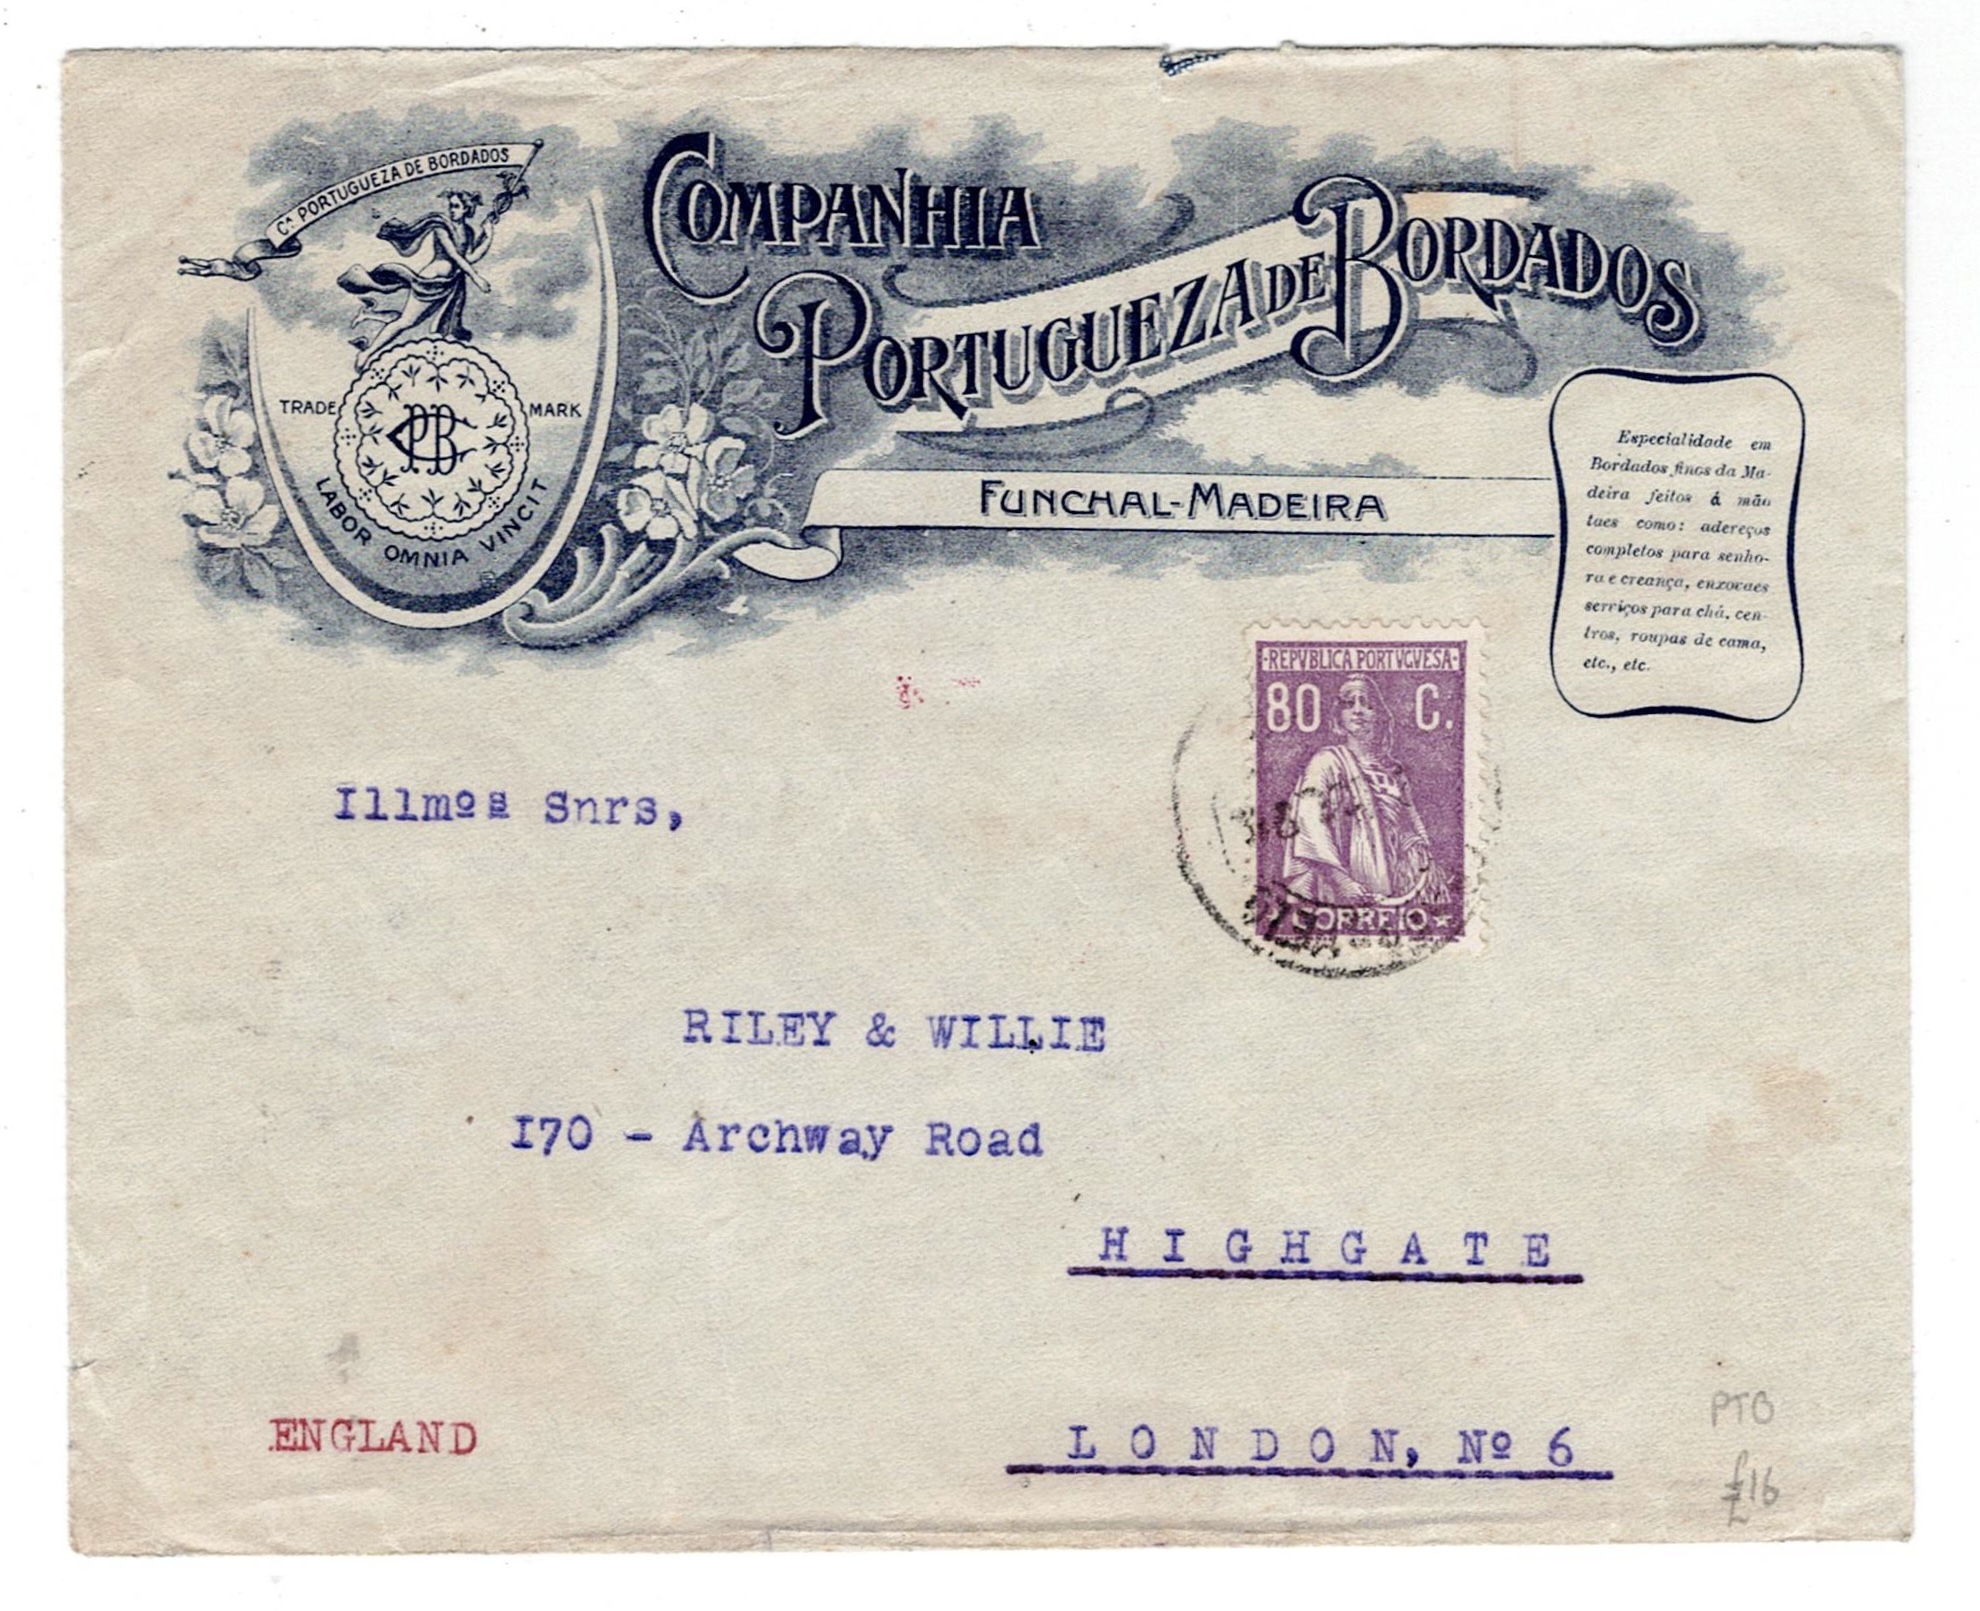 Cª PORTUGUEZA DE BORDADOS
TRADE MARK
CPB
LABOR OMNIA VINCIT
COMPANHIA
PORTUGUEZA DE BORDADOS
FUNCHAL-MADEIRA
Especialidade em
Bordados finos da Ma-
deira feitos á mão
taes como: adereços
completos para senho-
ra e creança, enxovaes
serviços para chá, cen-
tros, roupas de cama,
etc., etc.
·REPVBLICA PORTVGVESA·
80 C.
CORREIO
Illmos Snrs,
RILEY & WILLIE
I70 - Archway Road
HIGHGATE
ENGLAND
LONDON, Nº 6
PTO
£16